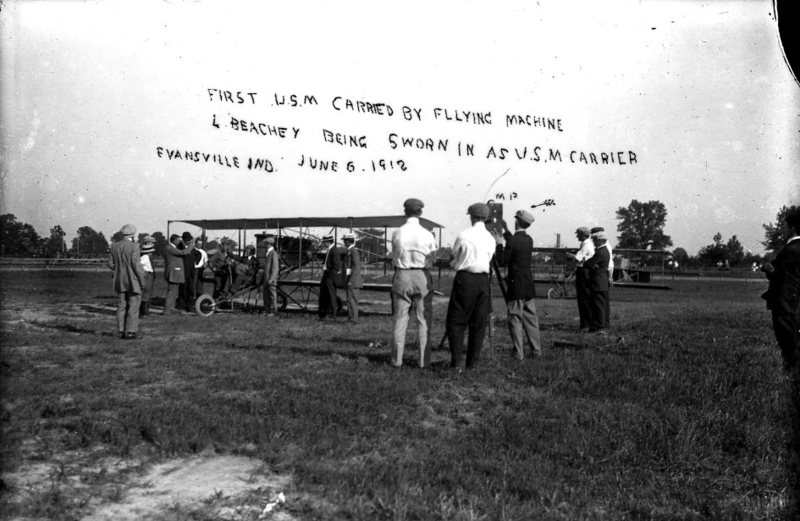 FIRST U.S.M CARRIED BY FLLYING MACHINE
L. BEACHEY BEING SWORN IN AS U.S.M CARRIER
EVANSVILLE IND. JUNE 6. 1912
M P